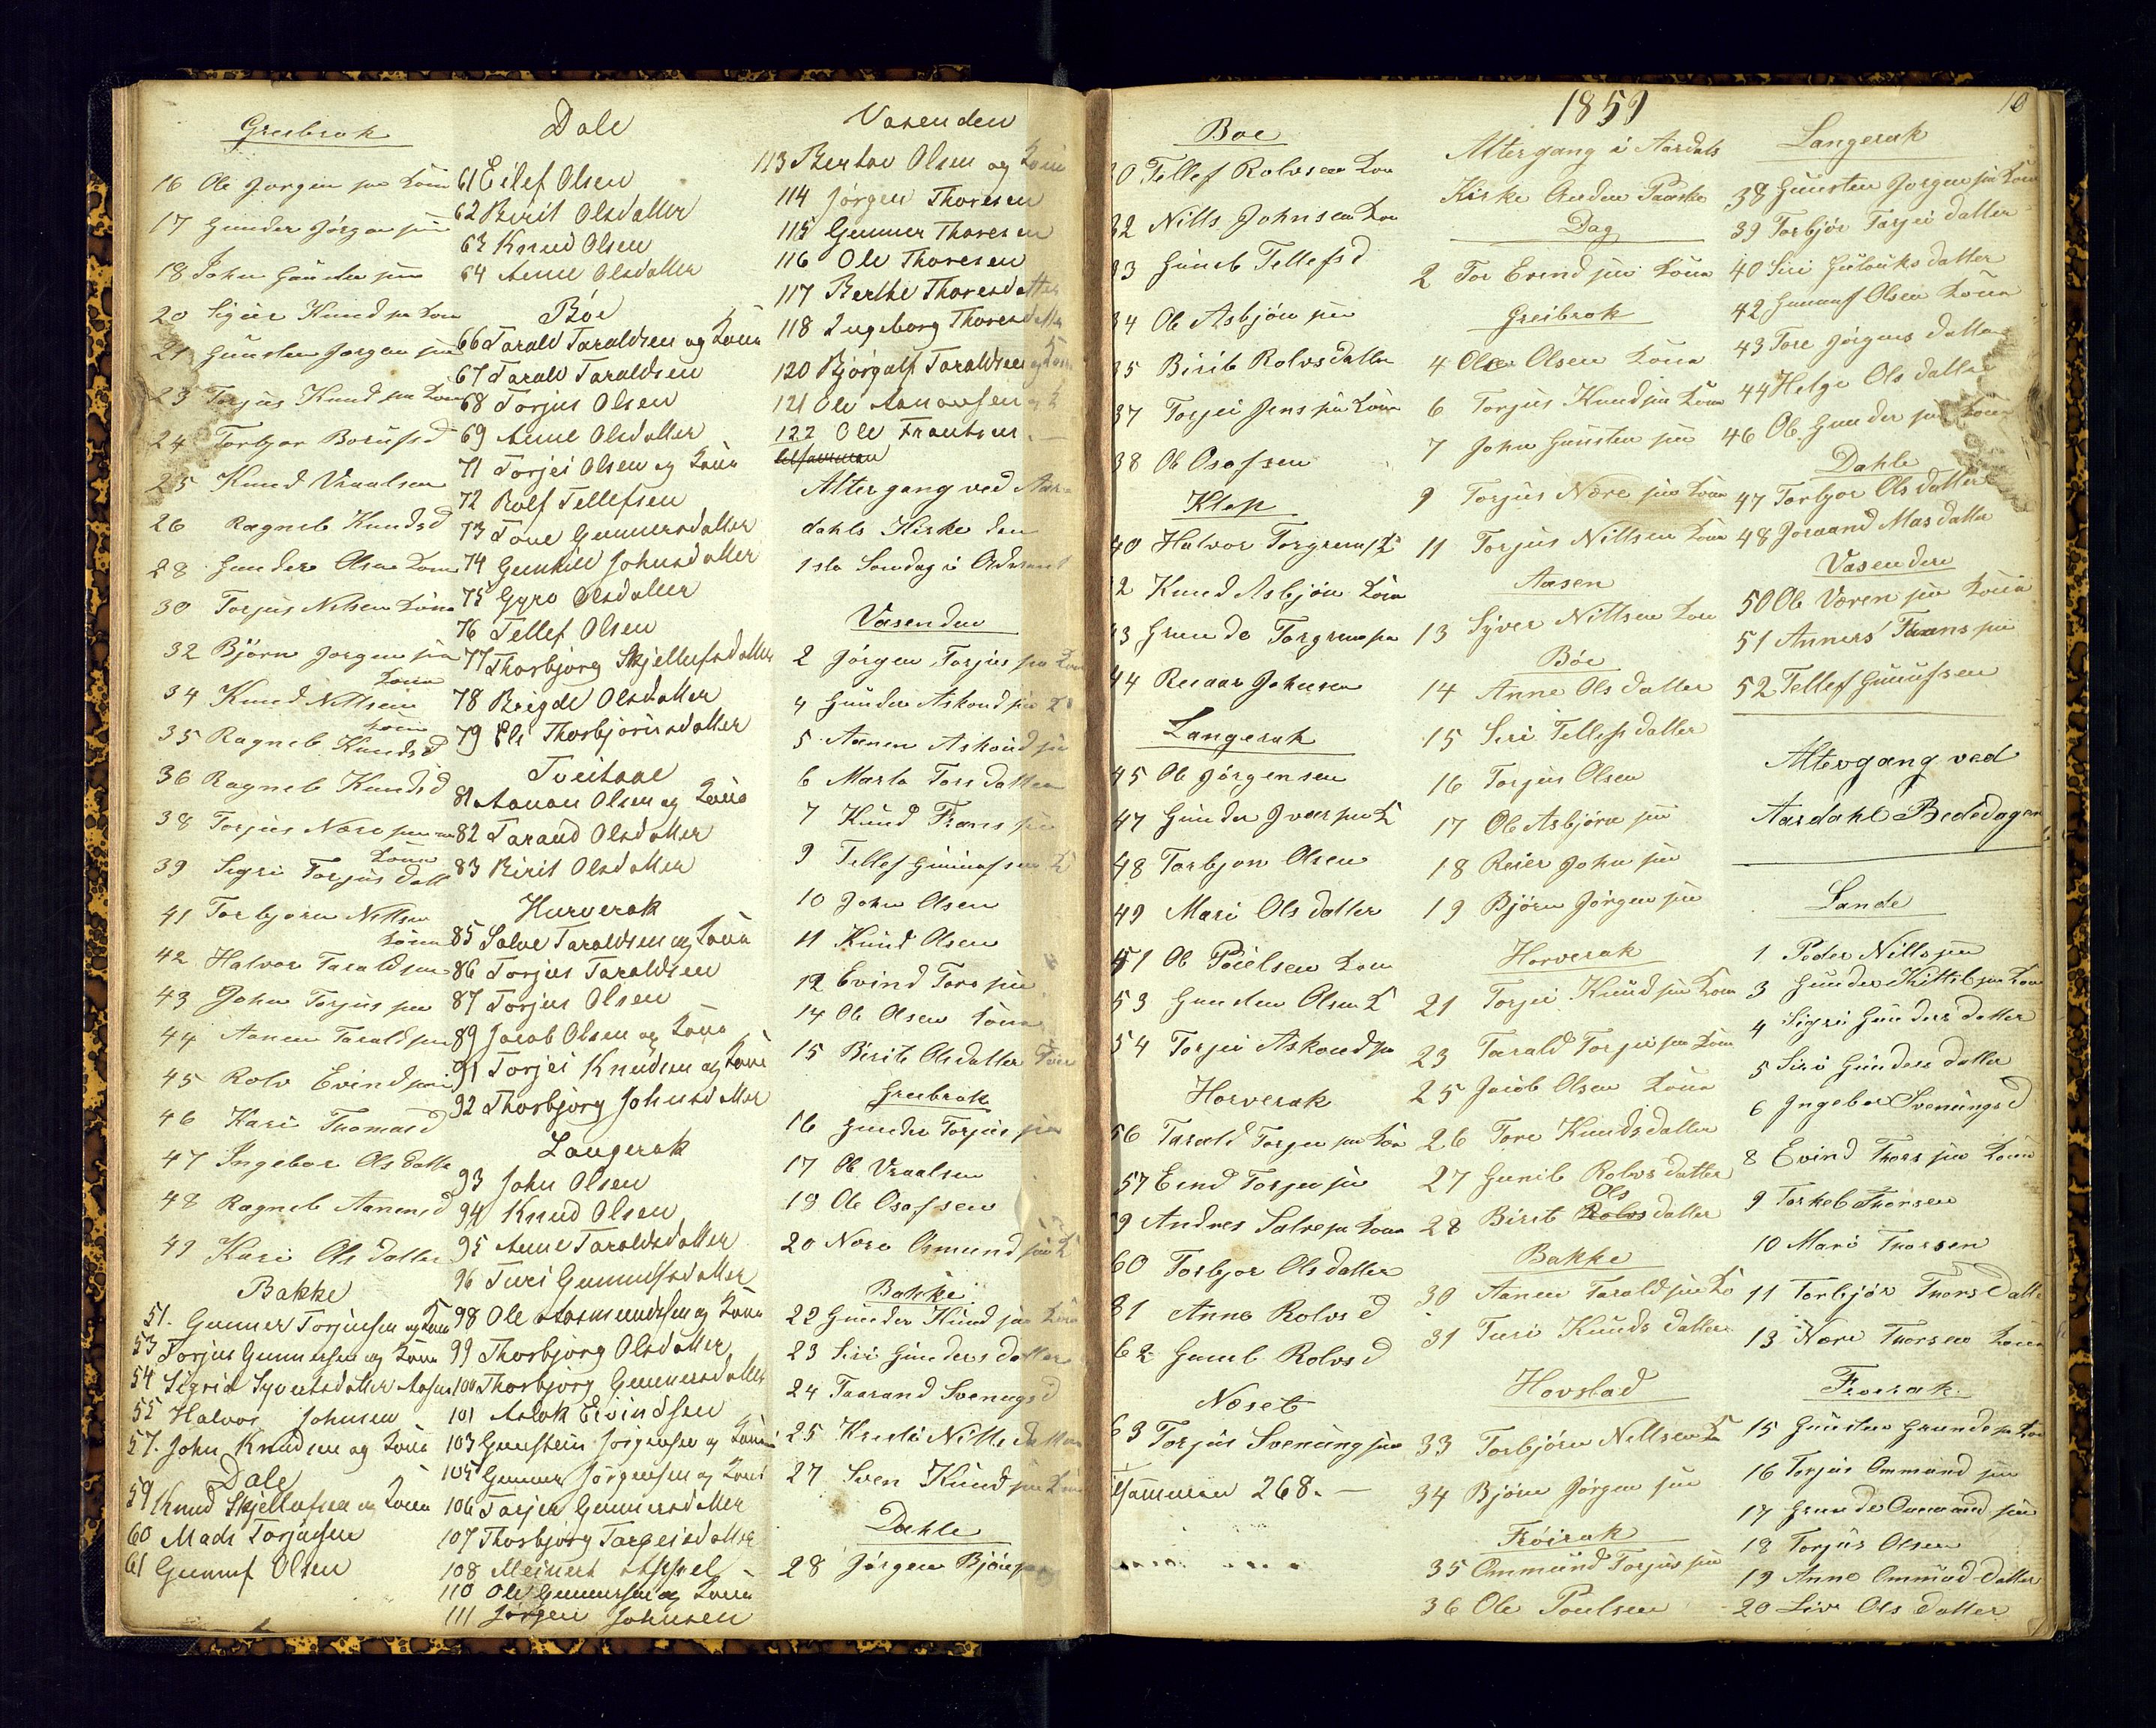 Greibrok
16 Ole Jorgen sen Kona
17 Gunder Jörgen sen
18 John Gunder sen
20 Sigur Knud sen Kona
21 Gunsten Jorgen sen
23 Torjus Knud sen Kona
24 Torbjor
25 Knud Vraalsen
26 Ragneb Knudsd
28 Gunder Olsen Kona
30 Torjus Nilsen Kona
32 Björn Jorgen sen
Kona
34 Knud Nillsen
Kona
35 Ragneb Knudsd
36 Ragneb Knudsd
38 Torjus Nære sen
Kona
39 Sigri Torjus datt
41 Torbjorn Nillsen
Kona
42 Halvor Tarald sen
43 John Torjus sen
44 Aanen Tarald sen
45 Rolv Evind sen
46 Kari Thomasd
47 Ingebor Ols datte
48 Ragneb Aanensd
49 Kari Ols datter
Bakke
51. Gunner Torjusen og Kona
53 Torjus Gunnersen og Kona
54 Sigrid Syvertsdatter Aasen
55 Halvor Johnsen
57. John Knudsen og Kona
Dale
59 Knud Skjellufsen og Kona
60 Mads Torjusen
61 Gunnuf Olsen
Dale
61 Eilef Olsen
62 Birit Olsdatter
63 Knud Olsen
64 Anne Olsdatter
Böe
66 Tarald Taraldsen og Kona
67 Tarald Taraldsen
68 Torjus Olsen
69 Anne Olsdatter
71 Torjei Olsen og Kona
72 Rolf Tellefsen
73 Tone Gunnersdatter
74 Gunhild Johnsdatter
75 Gyro Olsdatter
76 Tellef Olsen
77 Thorbjorg Skjellufsdatter
78 Brigde Olsdatter
79 Eli Thorbjörnsdatter
Tveitaae
81 Aanon Olsen og Kona
82 Tarand Olsdatter
83 Birit Olsdatter
Hurverak
85 Salve Taraldsen og Kona
86 Torjus Taraldsen
87 Torjus Olsen
89 Jacob Olsen og Kona
91 Torjei Knudsen og Kona
92 Thorbjorg Johnsdatter
Langerak
93 John Olsen
94 Knud Olsen
95 Anne Taraldsdatter
96 Turi Gunnufsdatter
98 Ole Aasmundsen og Kona
99 Thorbjorg Olsdatter
100 Thorbjorg Gunnersdatter
101 Aslak Eivindsen
103 Gunstein Jörgensen og Kona
105 Gunner Jörgensen og Kona
106 Torjer Gunnersdatter
107 Thorbjorg Targeisdatter
108 Meinert Appel
110 Ole Gunnersen og Kona
111 Jörgen Johnsen
Vasenden
113 Bertov Olsen og Kona
114 Jörgen Thoresen
115 Gunner Thoresen
116 Ole Thoresen
117 Berthe Thoresdatter
118 Ingeborg Thoresdatter
120 Bjorgalf Taraldsen og Kona
121 Ole Aanonsen og K
122 Ole Frantsen
tilsammen
Altergang ved Aar-
dahls Kirke den
1ste Sondag i Advent
Vasenden
2 Jörgen Torjus sen Kona
4 Gunder Askoud sen K
5 Aanen Askoud sen
6 Marte Tors datter
7 Knud Frans sen
9 Tellef Gunnufsen K
10 John Olsen
11 Knud Olsen
12 Evind Tors sen
14 Ole Olsen Kona
15 Birit Olsdatter
Greibrok
16 Gunder Torjus sen
17 Ole Vraalsen
18 Ole Osofsen
20 Nære Omund sen K
Bakke
22 Gunder Knud sen Kona
23 Siri Gunders datter
24 Taarand Svenugsd
25 Kristi Nills datter
27 Sven Knud sen Kona
Dahle
28 Jörgen Björnsen
Boe
30 Tellef Rolvsen Kona
32 Nills Johnsen Kon
33 Guneb Tellefsd
34 Ole Asbjön sen
35 Birit Rolvsdatter
37 Torjei Jens sen Kona
38 Ole Osofsen
Klep
40 Halvor Torgrims K
42 Knud Asbjön Kona
43 Grunde Torgrimsen
44 Reiaar Johnsen
Langerak
45 Ole Jörgensen
47 Gunder Ivarsen K
48 Torbjorn Olsen
49 Mari Ols datter
51 Ole Poülsen Kon
53 Gunsten Olsen K
54 Torjei Askoudsen
Horverak
56 Tarald Torjussen Kon
57 Eind Torjussen
59 Andres Salvesen Kona
60 Torbjor Ols datter
61 Anne Rolvsd
62 Guneb Rolvsd
Næset
63 Torjus Svenung sen
tilsammen 268.—
1859
Altergang i Aardals
Kirke Anden Paaske
Dag
2 Tor Evindsen Kona
Greibrok
4 Ole Olsen Kona
6 Torjus Knud sen Kona
7 John Gunsten sen
9 Torjus Nære sen Kona
11 Torjus Nillsen Kona
Aasen
13 Syver Nillsen Kon
Böe
14 Anne Ols datter
15 Siri Tellefs datter
16 Torjus Olsen
17 Ole Asbjörn sen
18 Reier John sen
19 Björn Jörgen sen
Horverak
21 Torjei Knud sen Kona
23 Tarald Torjei sen Kona
25 Jacob Olsen Kona
26 Tore Knuds datter
27 Guneb Rolvs datter
Ols
28 Birit Rolvs datter
Bakke
30 Aanen Tarald sen Ko
31 Turi Knuds datter
Hovstad
33 Torbjörn Nillsen K
34 Björn Jörgen sen
Fröirak
35 Ommund Torjus sen
36 Ole Poulsen
10
Langerak
38 Gunsten Jorgen sen Kona
39 Torbjör Torjei datter
40 Siri Guluks datter
42 Gunnuf Olsen Kona
43 Tore Jörgens datter
44 Helge Ols datter
46 Ole Gunder sen Kona
Dahle
47 Torbjor Ols datter
48 Joraand Mas datter
Vasenden
50 Ole Voren sen Kona
51 Anners Frans sen
52 Tellef Gunufsen
Altergang ved
Aardahl Bededagen
Lande
1 Peder Nillssen
3 Gunder Kittilsen Kona
4 Sigri Gunders datter
5 Siri Gunders datter
6 Ingebor Svenungsd
8 Evind Thors sen Kona
9 Torkel Thorsen
10 Mari Thorsen
11 Torbjör Thors datte
13 Nære Thorsen Kona
Fröirak
15 Gunsten Grunde sen Kon
16 Torjus Ommund sen
17 Grunde Ommund sen
18 Torjus Olsen
19 Anne Ommund datter
20 Liv Ols datter